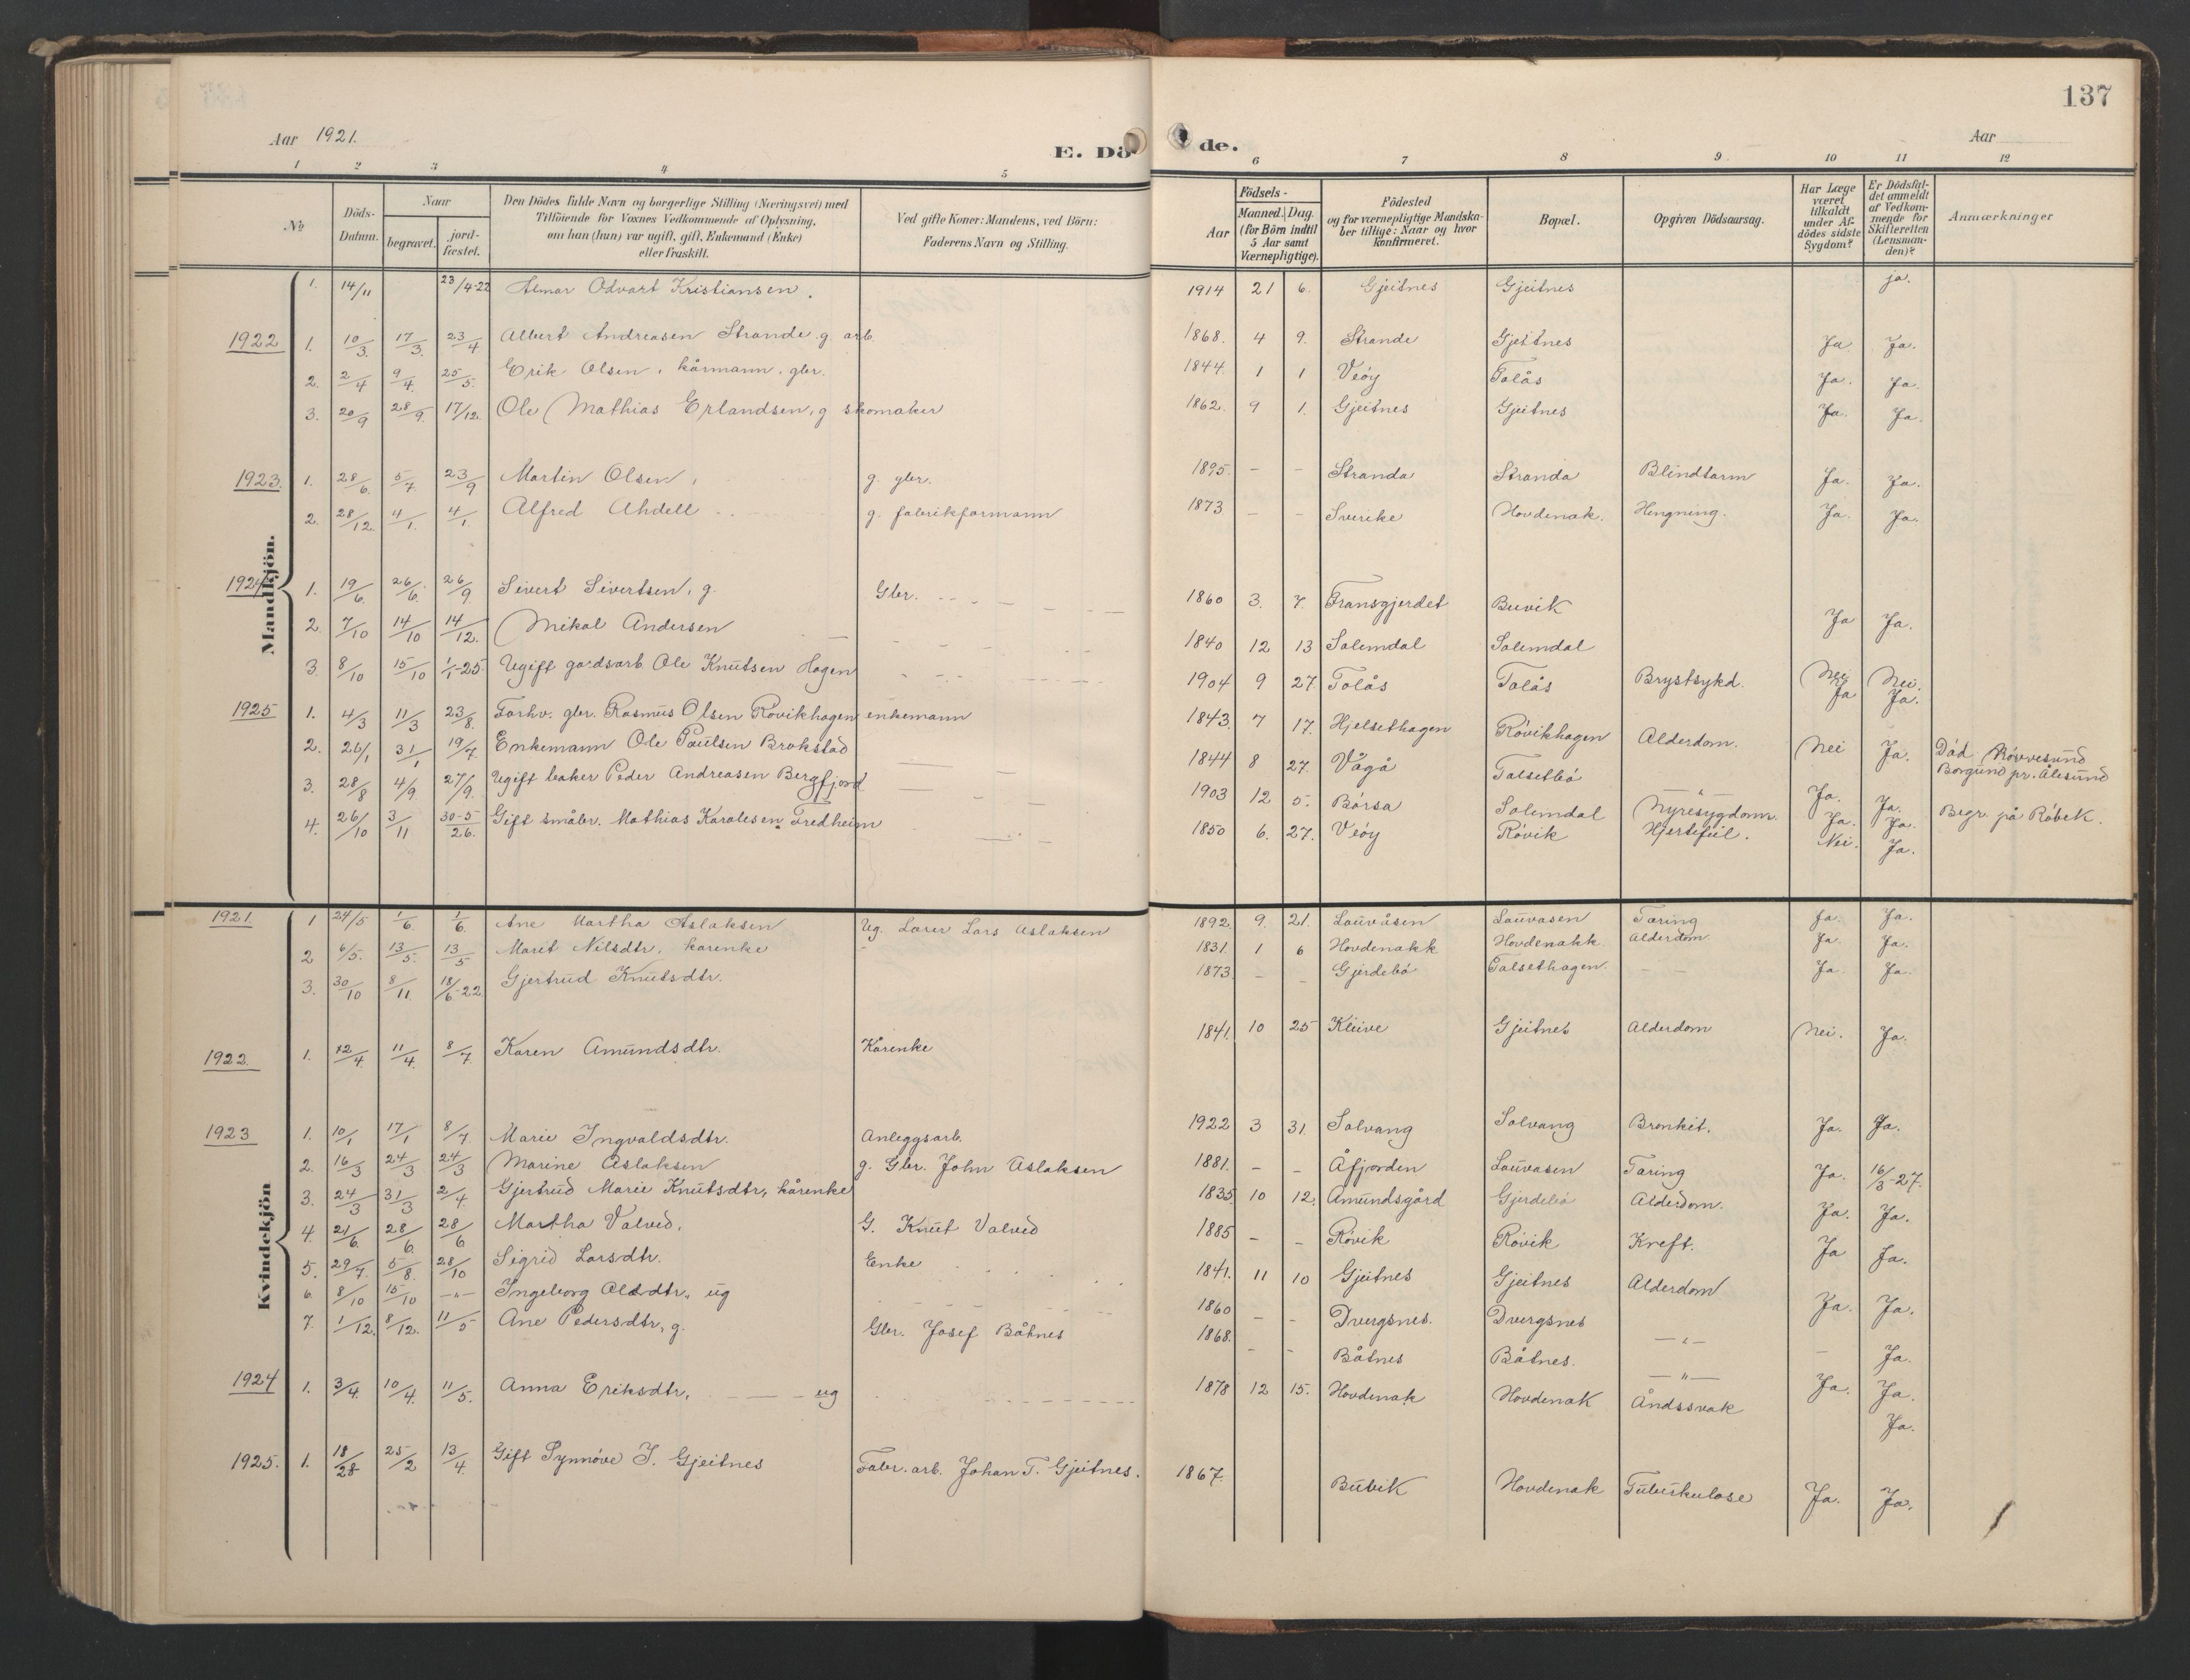 137
Aar 1921.
E. Dö de.
Aar
1 2 3 4 5 6 7 8 9 10 11 12
No
Döds-Datum.
Naar
begravet.
jord-fæstet.
Den Dödes fulde Navn og borgerlige Stilling (Næringsvei) med
Tilföiende for Voxnes Vedkommende af Oplysning,
om han (hun) var ugift, gift, Enkemand (Enke)
eller fraskilt.
Ved gifte Koner: Mandens, ved Börn:
Faderens Navn og Stilling.
Födsels-
Aar
Maaned. Dag.
(for Börn indtil
5 Aar samt
Værnepligtige).
Födested
og for værnepligtige Mandska-
ber tillige: Naar og hvor
konfirmeret.
Bopæl.
Opgiven Dödsaarsag.
Har Læge
været
tilkaldt
under Af-
dödes sidste
Sygdom?
Er Dödsfal-
det anmeldt
af Vedkom-
mende for
Skifteretten
(Lensman-
den)?
Anmærkninger
Mandkjön.
1. 14/11 23/4-22 Almar Odvart Kristiansen. 1914 21 6. Gjeitnes Gjeitnes ja.
1922 1. 10/3. 17/3. 23/4 Albert Andreasen Strande. g arb. 1868. 4 9. Strande Gjeitnes Ja Ja.
2. 2/4 9/4. 25/5. Erik Olsen, kårmann, gbr. 1844. 1 1 Veöy Talås Ja. Ja.
3. 20/9 28/9. 17/12. Ole Mathias Erlandsen, g skomaker 1862. 9 1. Gjeitnes Gjeitnes Ja. Ja.
1923. 1. 28/6. 5/7. 23/9 Martin Olsen, g. gbr. 1895. - - Stranda Stranda Blindtarm Ja. Ja.
2. 28/12. 4/1. 4/1 Alfred Ahdell g. fabrikformann 1873 - - Sverike Hovdenak. Hengning. Ja. Ja.
1924 1. 19/6. 26/6. 26/9. Sivert Sivertsen, g. Gbr. 1860 3. 7. Fransgjerdet Buvik Ja Ja.
2 7/10 14/10 14/12. Mikal Andersen 1840 12 13 Solemdal Solemdal
3 8/10 15/10 1/1-25. Ugift gardsarb. Ole Knutsen Hagen 1904 9 27. Tolås Talås Brystsykd. Nei Nei.
1925 1. 4/3 11/3 23/8. Forhv. gbr. Rasmus Olsen Rövikhagen enkemann 1843. 7 17. Hjelsethagen Rövikhagen Alderdom. Ja Ja.
2. 26/1 31/1 19/7. Enkemann Ole Paulsen Brokstad 1844 8 27. Vågå Talsetbö —"— Nei Ja. Död Rövvesund Borgund pr. Ålesund
3. 28/8 4/9. 27/9. Ugift baker Peder Andreasen Bergfjord 1903 12 5. Börsa Solemdal Nyresygdom. Ja. Ja. Ja. Ja. Begr. på Röbek.
4. 26/10 3/11 30-5/26. Gift småbr. Mathias Karolesen Fredheim 1850 6. 27. Veöy Rövik Hjertefeil. Nei. Ja.
Kvindekjön
1921. 1 24/5 1/6 1/6. Ane Martha Aslaksen Ug. Lærer Lars Aslaksen 1892. 9. 21. Lauvåsen Lauvasen Tæring Ja. Ja.
2 6/5. 13/5. 13/5 Marit Nilsdtr. karenke 1831. 1 6 Hovdenakk Hovdenakk. Alderdom Ja. Ja.
3. 30/10 8/11 18/6-22. Gjertrud Knutsdtr. 1873. - - Gjerdebö Talsethagen. - - Ja. Ja.
1922. 1. 12/4. 11/4. 8/7. Karen Amundsdtr. Kårenke 1841. 10 25 Kleive Gjeitnes Alderdom Nei. Ja.
1923 1. 10/1 17/1 8/7. Marie Ingvaldsdtr. Anleggsarb. 1922 3 31. Solvang Solvang Bronkit. Ja. Ja.
2. 16/3 24/3 24/3 Marine Aslaksen g. Gbr. John Aslaksen 1881. - - Åfjorden Lauvasen Tæring Ja. 16/3-27.
3. 24/3 31/3 2/4. Gjertrud Marie Knutsdtr, kårenke 1835. 10 12. Amundsgård Gjerdebö Alderdom. Ja. Ja.
4. 21/6. 28/6. 28/6 Martha Valved. G. Knut Valved 1885 - - Rövik Rövik Kreft. Ja Ja.
5. 29/7. 5/8. 28/10 Sigrid Larsdtr. Enke 1841. 11 10 Gjeitnes Gjeitnes Alderdom Ja. Ja.
6. 8/10 15/10 —"— Ingeborg Olsdtr., ug 1860 - - Dvergsnes. Dvergsnes —"— - Ja.
7. 1/12. 8/12. 11/5 Ane Pedersdtr, g. Gbr. Josef Båtnes 1868. - - Båtnes Båtnes. —"— Ja. Ja.
1924 1. 3/4. 10/4. 11/5. Anna Eriksdtr, ug 1878 12 15. Hovdenak Hovdenak Åndssvak Ja.
1925. 1. 18/28 25/2 13/4. Gift Synnöve J. Gjeitnes Fabr. arb. Johan T. Gjeitnes. 1867. Bubik Hovdenak Tuberkulose Ja. Ja.